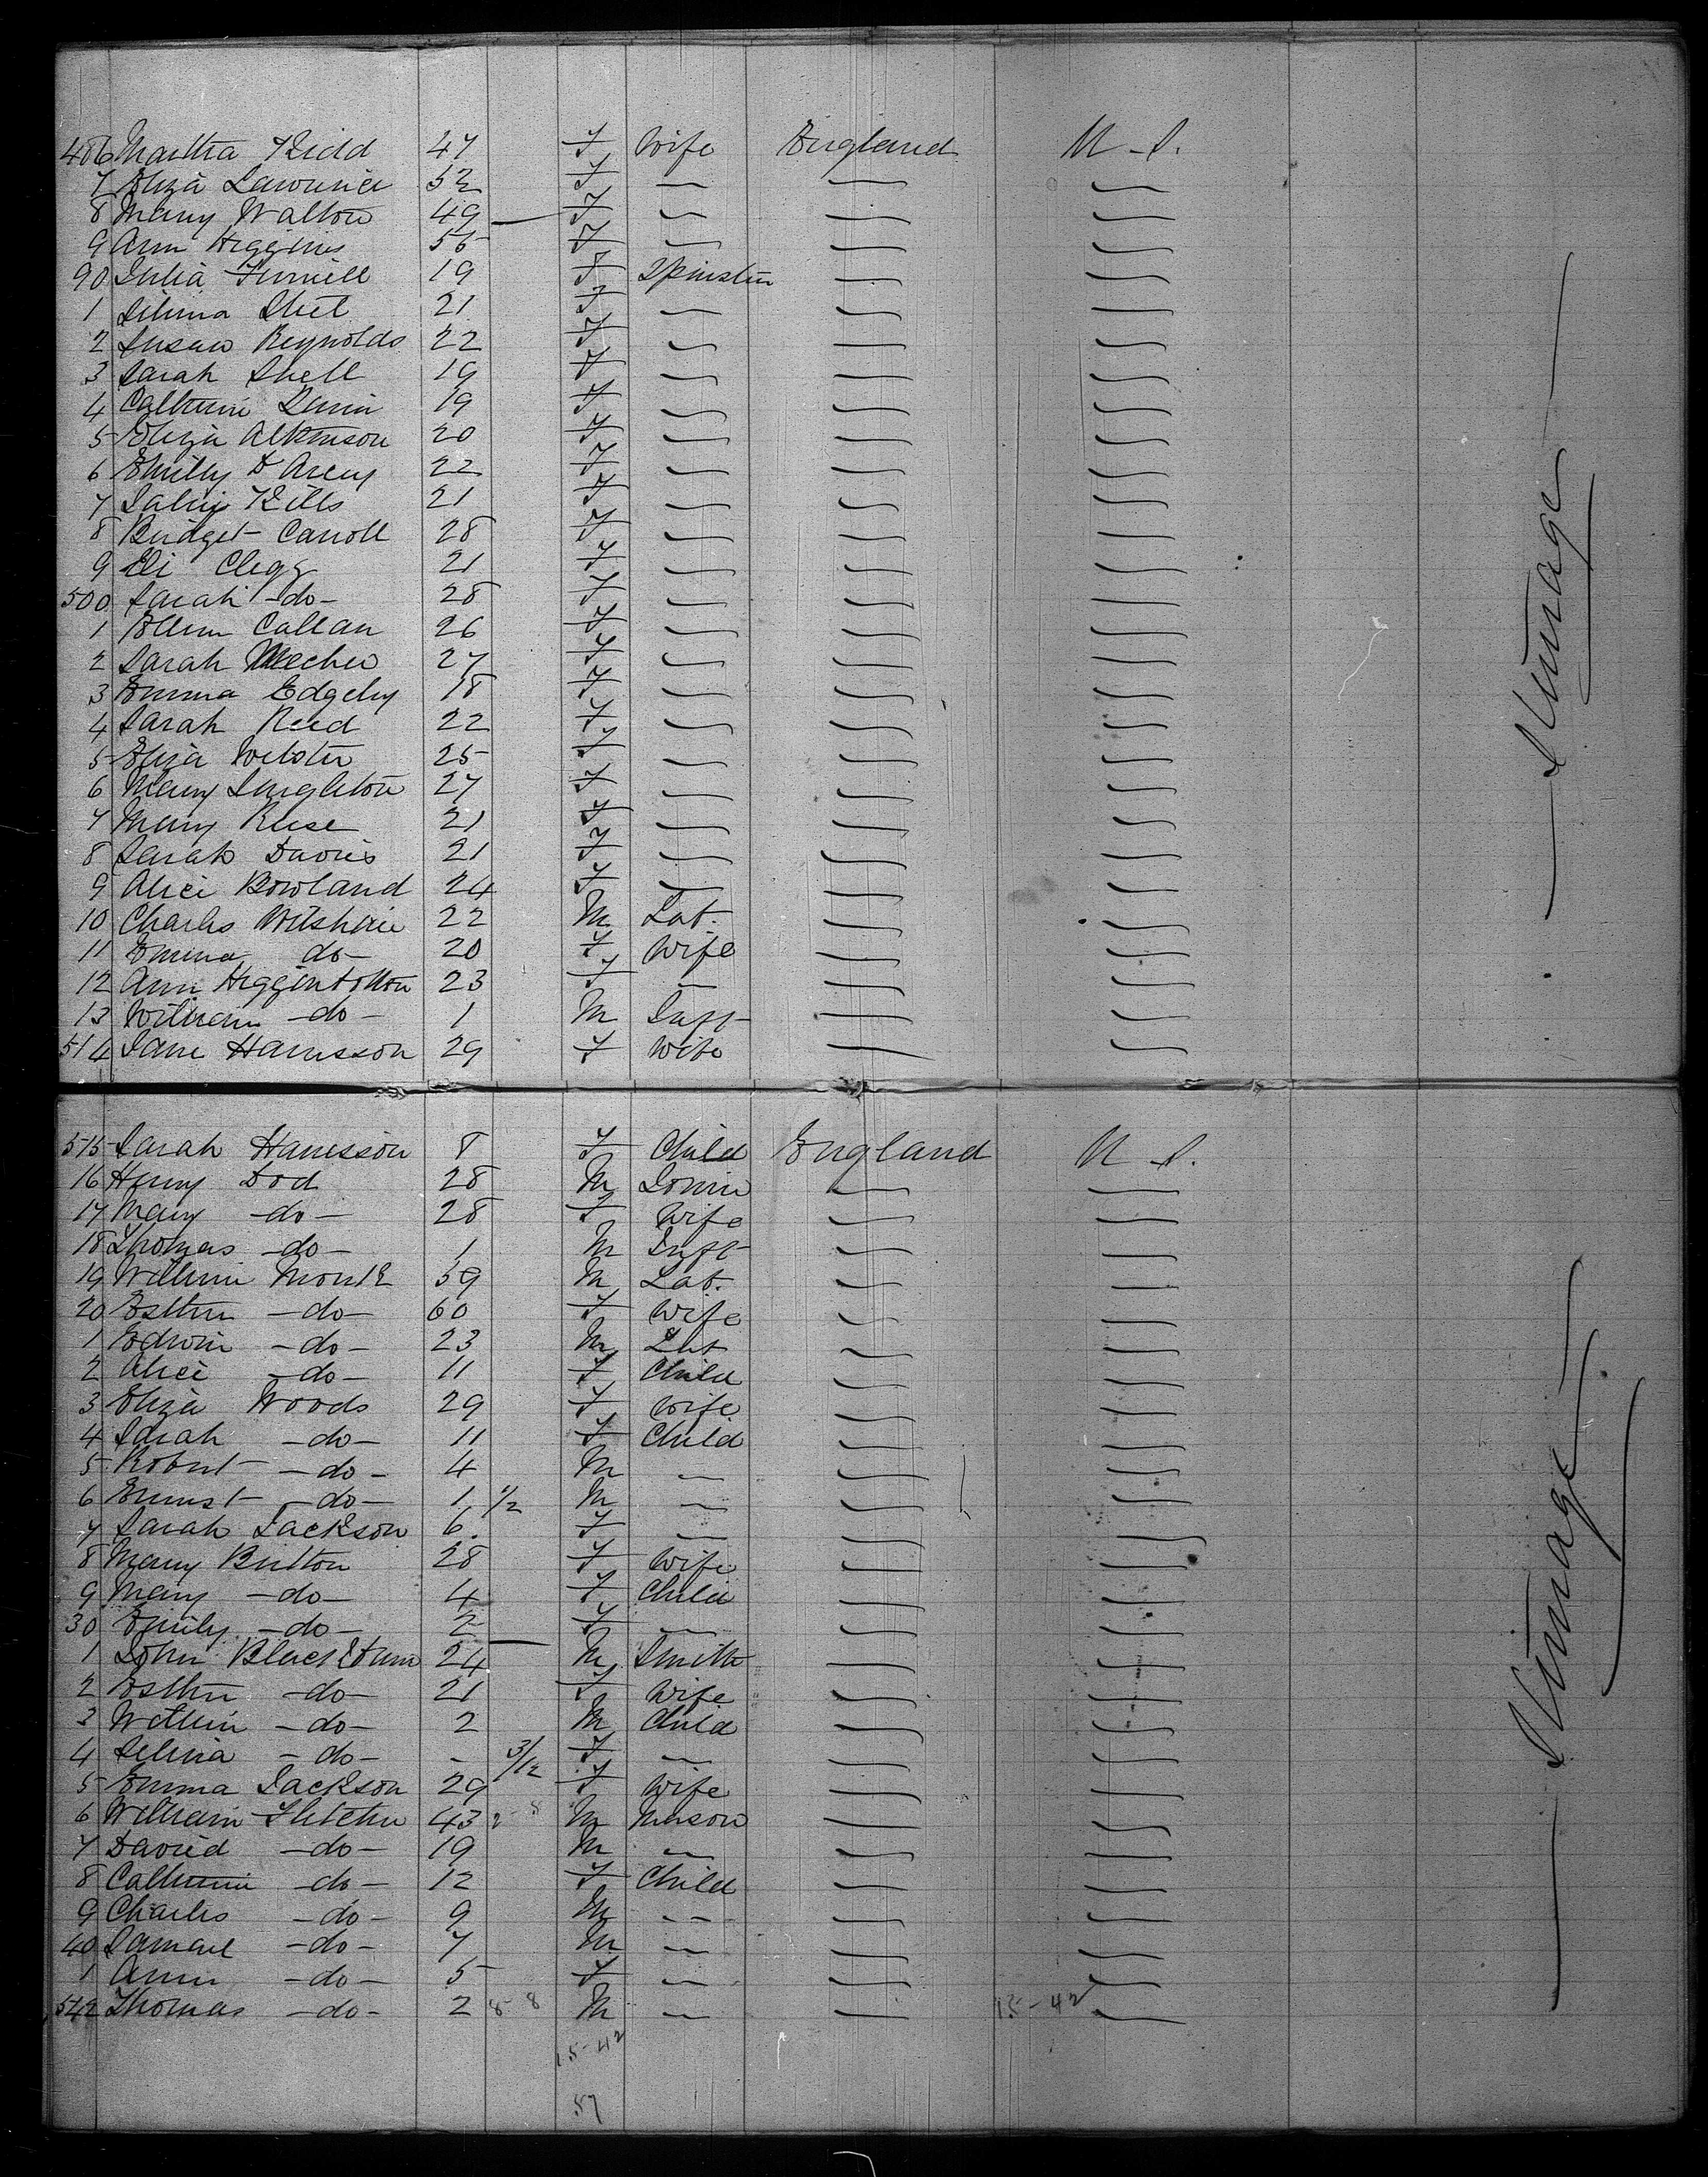 486 Martha Kidd 47 F Wife England U.S.
7 Eliza Lawrence 52 F
8 Mary Walton 49 F
9 Ann Higgins 55 F
90 Julia Funnell 19 F Spinster
1 Selina 21 F
2 Susan Reynolds 22 F
3 Sarah Shell 19 F
4 Catherine 19 F
5 Eliza Atkinson 20 F
6 Emily D'Arcy 22 F
7 21 F
8 Bridget Carroll 28 F
9 Eli Clegg 21 F
500 Sarah -do- 28 F
1 Ellen Callan 26 F
2 Sarah 27 F
3 Emma Edgeley 18 F
4 Sarah Reed 22 F
5 Eliza Webster 25 F
6 Mary Singleton 27 F
7 Mary Reese 21 F
8 Sarah Davis 21 F
9 Alice Bowland 24 F
10 Charles Wilshire 22 M Lab.
11 Emma do- 20 F Wife
12 Ann Higginbotton 23 F
13 William -do- 1 M Inft
514 Jane Harrisson 29 F Wife
Steerage
515 Sarah Harrisson 8 F Child England U.S.
16 Henry Dod 28 M
17 Mary -do- 28 F Wife
18 Thomas -do- 1 M Inft
19 William Monk 59 M Lab.
20 Esther -do- 60 F Wife
1 Edwin -do- 23 M Lab
2 Alice -do- 11 F Child
3 Eliza Woods 29 F Wife
4 Sarah -do- 11 F Child
5 Robert -do- 4 M
6 Ernest -do- 1 1/2 M
7 Sarah Jackson 6. F
8 Mary Britton 28 F Wife
9 Mary -do- 4 F Child
30 Emily -do- 2 F
1 John Blackburn 24 M Smith
2 Esther -do- 21 F Wife
3 William -do- 2 M Child
4 Selina -do- - 3/12 F
5 Emma Jackson 29 F Wife
6 William Fletcher 43 M Mason
7 David -do- 19 M
8 Catherine -do- 12 F Child
9 Charles -do- 9 M
40 Samuel -do- 7 M
1 Ann -do- 5 F
542 Thomas -do- 2 8-8 M 15-42
15-42
57
Steerage